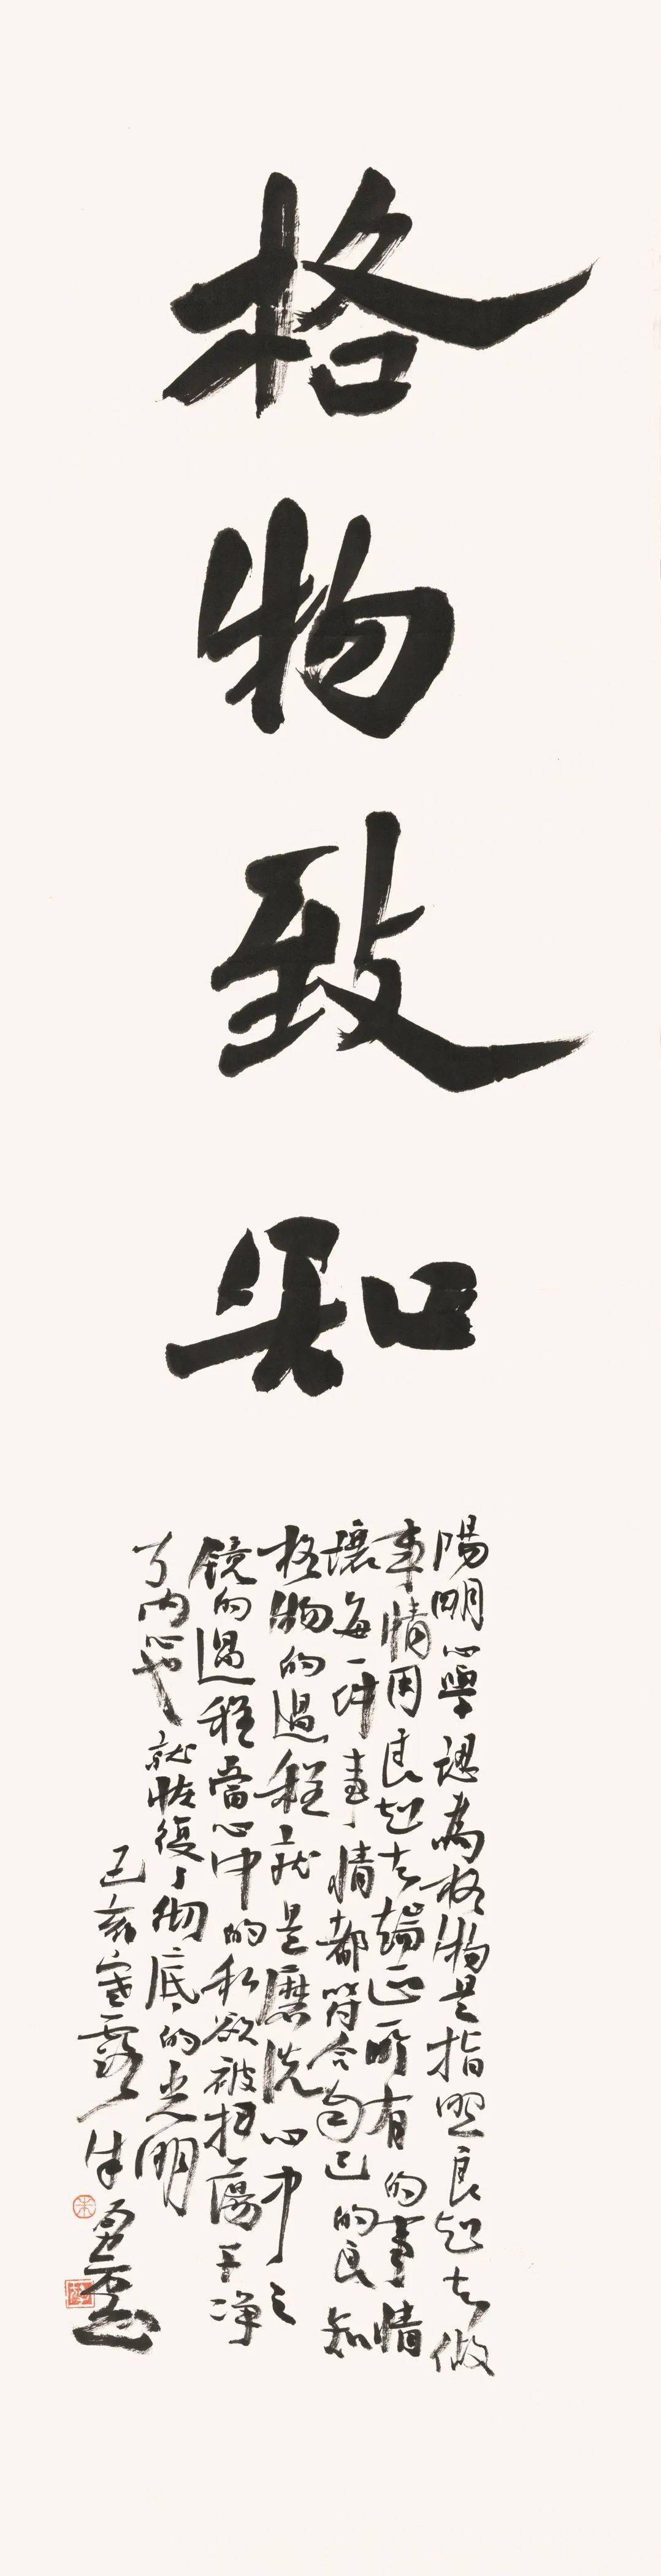 格物致知
陽明心學認為格物是指照良知去做
事情用良知去端正所有的事情
壞每一件事情都符合自己的良知
格物的過程就是磨洗心中之
镜的過程當心中的私欲被扫蕩干净
了内心就恢復了彻底的光明
己亥寒露朱勇